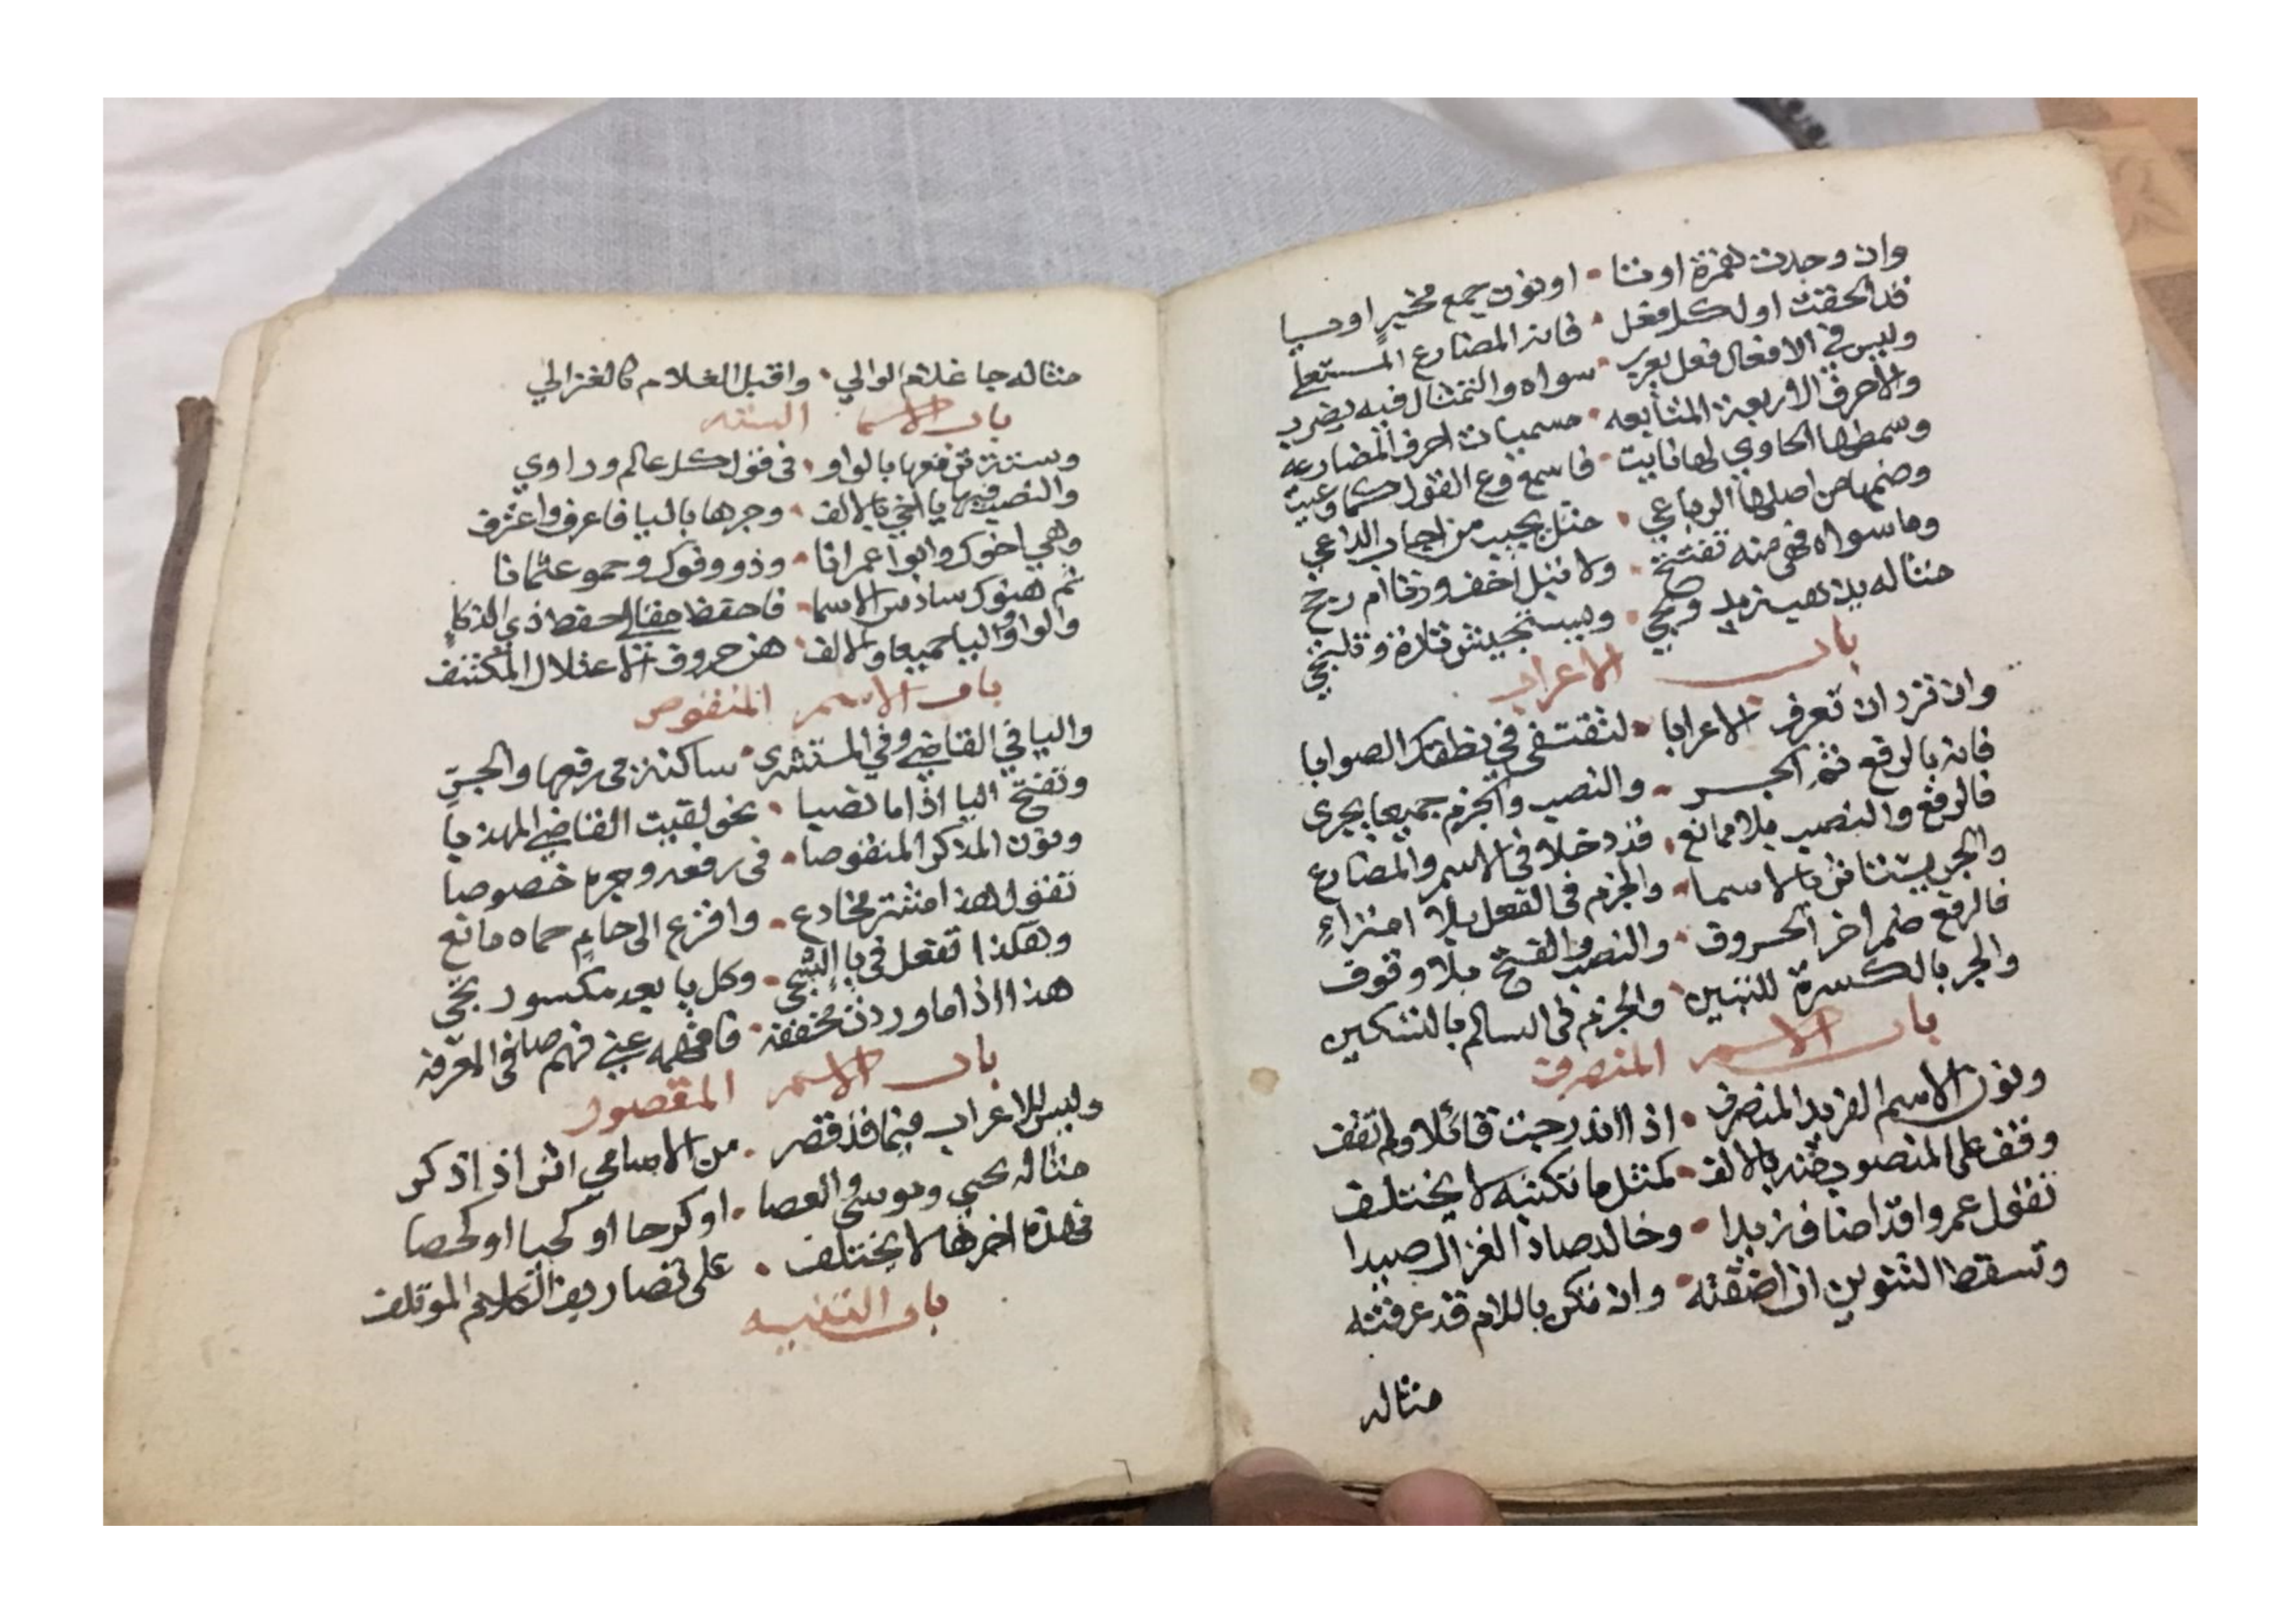 وان وجدت همزة او تا • او نون جمع مخبر او يا
قد الحقت اول كل فعل • فانه المضارع المستعلي
وليس في الافعال فعل يعرب • سواه والتمثال فيه يضرب
والاحرف الاربعة المتابعه • مسميات احرف المضارعه
وسمطها الحاوي لها نايت • فاسمع وع القول كما وعيت
وضمها من اصلها الرباعي • مثل يجيب من اجاب الداعي
وما سواه فهي منه تفتتح • ولا تبل اخف وزنا ام رجح
مثاله يذهب زيد ويجي • ويستجيش تارة ويلتجي
باب الاعراب
وان ترد ان تعرف الاعرابا • لتقتفي في نطقك الصوابا
فانه بالرفع ثم الجر • والنصب والجزم جميعا يجري
فالرفع والنصب بلا ممانع • قد دخلا في الاسم والمضارع
والجر يستاثر بالاسما • والجزم في الفعل بلا امتراء
فالرفع ضم اخر الحروف • والنصب بالفتح بلا وقوف
والجر بالكسرة للتبيين • والجزم في السالم بالتسكين
باب الاسم المنصرف
ونون الاسم الفريد المنصرف • اذا اندرجت قائلا ولم تقف
وقف على المنصوب منه بالالف • كمثل ما تكتبه لا يختلف
تقول عمرو اقد اضاف زيدا • وخالد صاد الغزال صيدا
وتسقط التنوين ان اضفته • وان تكن باللام قد عرفته
مثاله
مثاله جا غلام الوالي • واقبل الغلام كالغزالي
باب الاسما السته
وستة ترفعها بالواو • في قول كل عالم وراوي
والنصب فيها يا اخي بالالف • وجرها باليا فاعرف واعترف
وهي اخوك وابو اعمرانا • وذو وفوك وحمو عثمانا
ثم هنوك سادس الاسما • فاحفظ مقالي حفظ ذي الذكاء
والواو واليا جميعا والالف • هن حروف الاعتلال المكتنف
باب الاسم المنقوص
واليا في القاضي وفي المستشري • ساكنة في رفعها والجر
وتفتح اليا اذا ما نصبا • نحو لقيت القاضي المهذبا
ونون المذكر المنقوصا • في رفعه وجره خصوصا
تقول هذا مشتر مخادع • وافزع الى حام حماه مانع
وهكذا تفعل في يا الشجي • وكل يا بعد مكسور تجي
هذا اذا ما وردت مخففه • فافهمه عني فهم صافي المعرفه
باب الاسم المقصور
وليس للاعراب فيما قد قصر • من الاسامي اثر اذا ذكر
مثاله يحيى وموسى والعصا • او كرحا او كحيا او كحصا
فهذه اخرها لا يختلف • على تصاريف الكلام الموتلف
باب التثنيه